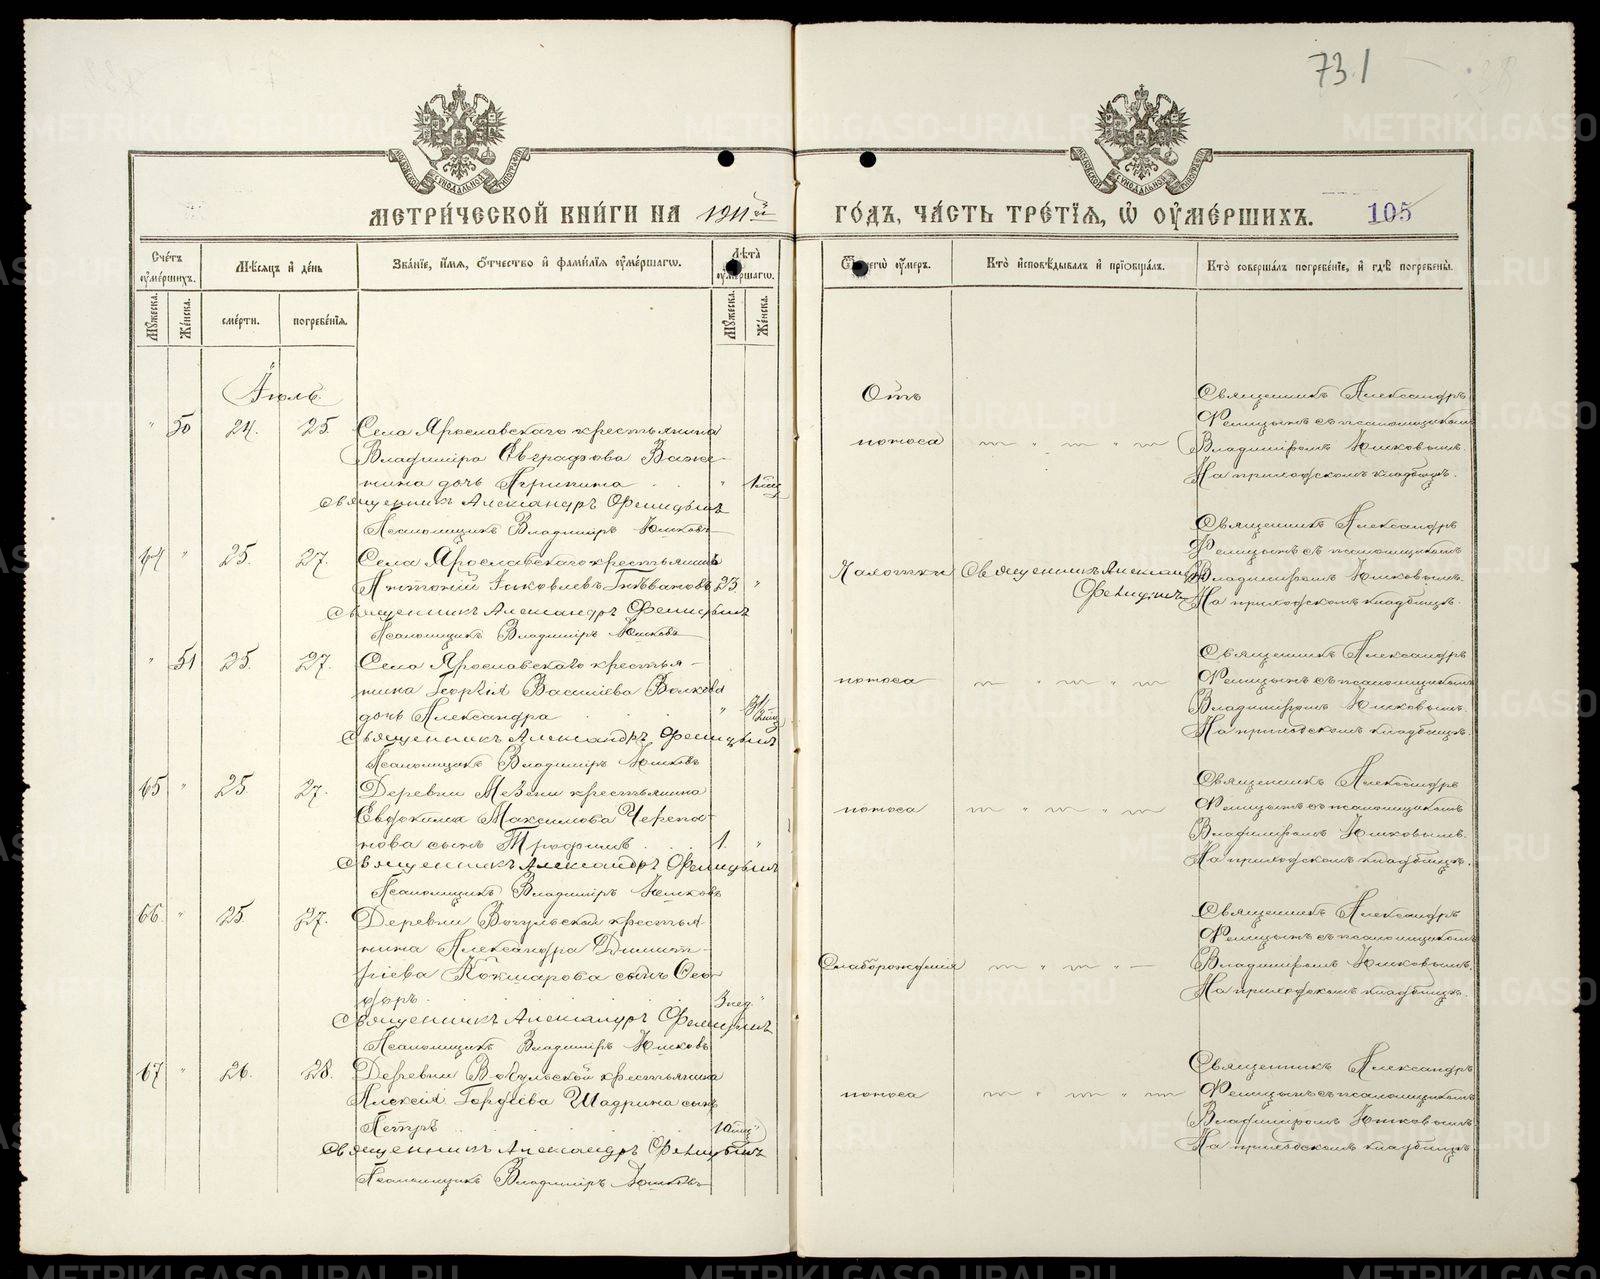 73.1
МОСКОВСКОЙ СѴНОДАЛЬНОЙ ТИПОГРАФІИ
МОСКОВСКОЙ СѴНОДАЛЬНОЙ ТИПОГРАФІИ
МЕТРИ́ЧЕСКОЙ КНИ́ГИ НА 1911й ГО́ДЪ, ЧА́СТЬ ТРЕ́ТЇѦ, Ѡ҆ ОУ҆МЕ́РШИХЪ. 105
Сче́тъ оу҆ме́ршихъ.
Мѣ́сѧцъ и҆ де́нь
Зва́нїе, и҆́мѧ, ѻ҆́тчество и҆ фами́лїѧ оу҆ме́ршагѡ.
Лѣ́та оу҆ме́ршагѡ.
Ѿ чегѡ̀ оу҆́меръ.
Кто̀ и҆сповѣ́дывалъ и҆ прїѡбща́лъ.
Кто̀ соверша́лъ погребе́нїе, и҆ гдѣ̀ погребены̀.
Мꙋ́жеска.
Же́нска.
сме́рти.
погребе́нїѧ.
Мꙋ́жеска.
Же́нска.
Іюль
" 50 24. 25. Села Ярославскаго крестьянина
Владиміра Евграфова Важе-
нина дочь Агрипина . . " 1 мѣс
Священникъ Александръ Фелицынъ
Псаломщикъ Владиміръ Юшковъ
Отъ
поноса
Священникъ Александръ
Фелицынъ съ псаломщикомъ
Владиміромъ Юшковымъ.
На приходскомъ кладбищѣ.
64 " 25. 27. Села Ярославскаго крестьянинъ
Антоній Іаковлевъ 23 "
Священникъ Александръ Фелицынъ
Псаломщикъ Владиміръ Юшковъ
Чахотки
Священникъ Александръ
Фелицынъ
Священникъ Александръ
Фелицынъ съ псаломщикомъ
Владиміромъ Юшковымъ.
На приходскомъ кладбищѣ.
" 51 25. 27. Села Ярославскаго крестья-
нина Георгія Василіева Волкова
дочь Александра . . . "
Священникъ Александръ Фелицынъ
Псаломщикъ Владиміръ Юшковъ
поноса
Священникъ Александръ
Фелицынъ съ псаломщикомъ
Владиміромъ Юшковымъ.
На приходскомъ кладбищѣ.
65 " 25 27. Деревни Мезени крестьянина
Евдокима Максимова Черепа-
нова сынъ Трофимъ . . 1. "
Священникъ Александръ Фелицынъ
Псаломщикъ Владиміръ Юшковъ
поноса
Священникъ Александръ
Фелицынъ съ псаломщикомъ
Владиміромъ Юшковымъ.
На приходскомъ кладбищѣ.
66. " 25. 27. Деревни Вогульской крестья-
нина Александра Димит-
ріева Кокшарова сынъ Ѳео-
доръ . . . . . . 3 нед. "
Священникъ Александръ Фелицынъ
Псаломщикъ Владиміръ Юшковъ
Слаборожденія
Священникъ Александръ
Фелицынъ съ псаломщикомъ
Владиміромъ Юшковымъ.
На приходскомъ кладбищѣ.
67 " 26. 28. Деревни Вогульской крестьянина
Алексія Гордѣева Шадрина сынъ
Петръ . . . . . 10 мѣс "
Священникъ Александръ Фелицынъ
Псаломщикъ Владиміръ Юшковъ
поноса
Священникъ Александръ
Фелицынъ съ псаломщикомъ
Владиміромъ Юшковымъ.
На приходскомъ кладбищѣ.
METRIKI.GASO-URAL.RU